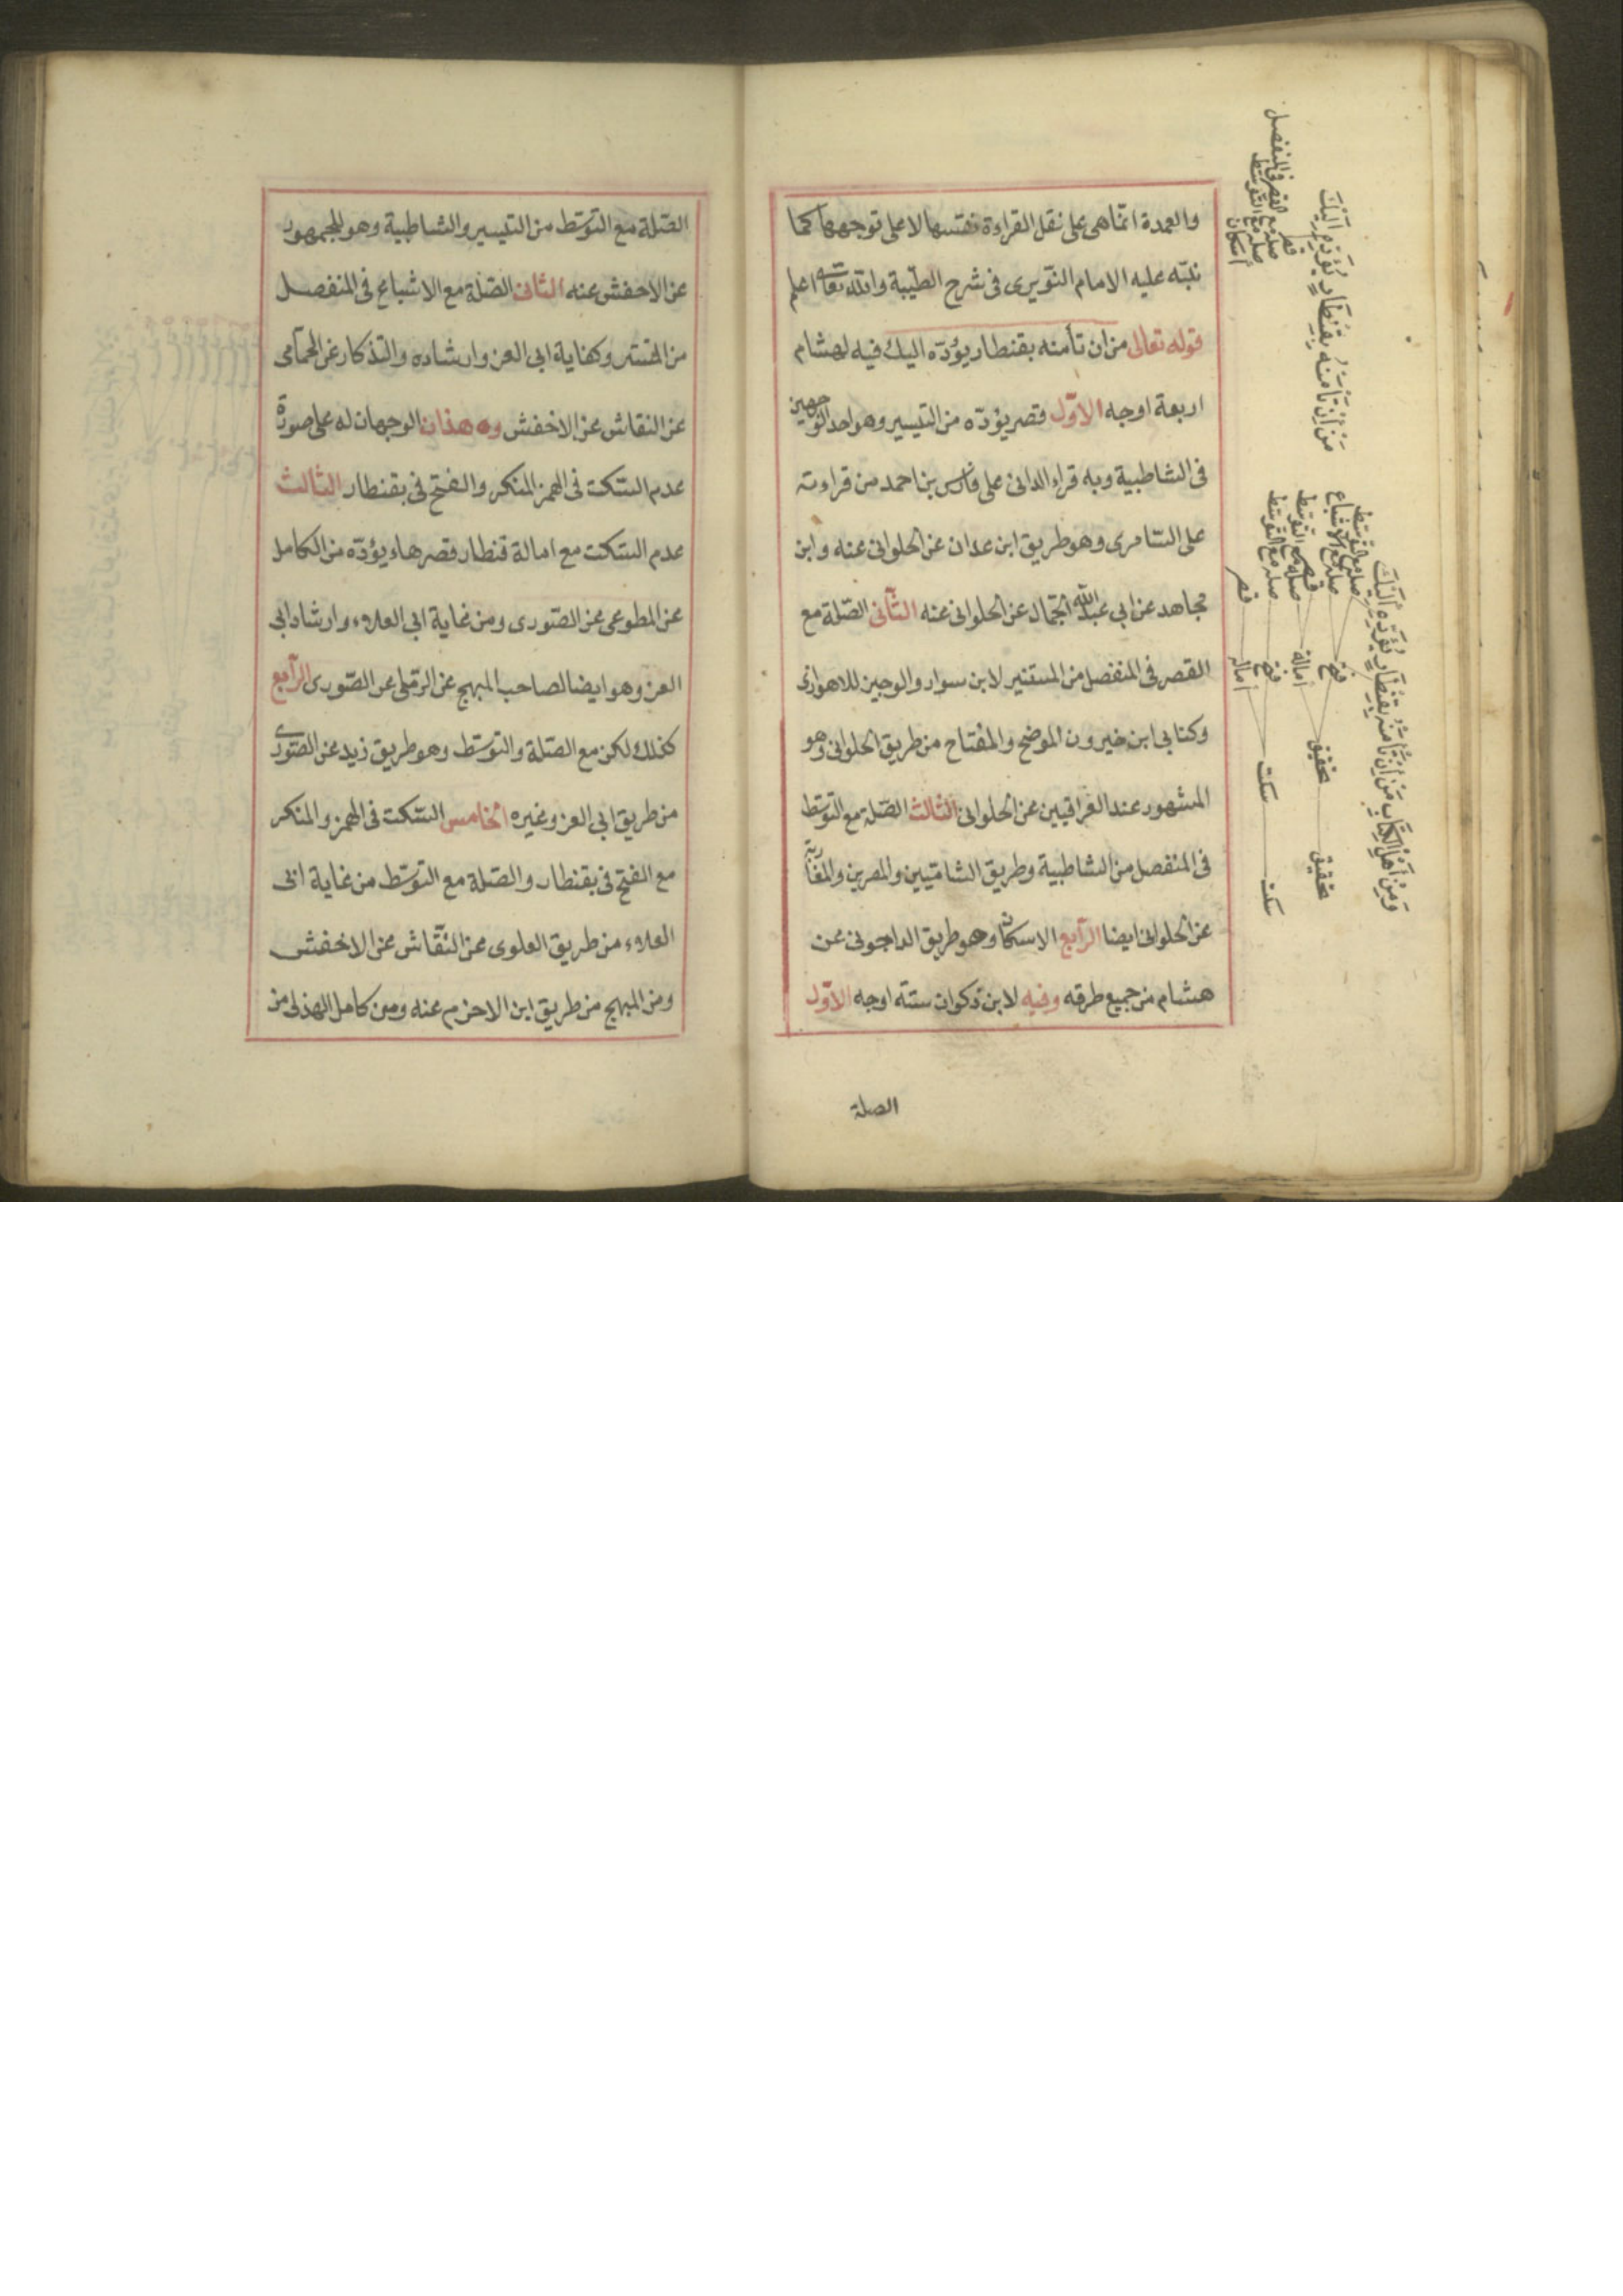 والعمدة انما هى على نقل القراءة نفسها لا على توجهها كما
نبّه عليه الامام النّويرى فى شرح الطيّبة والله تعالى اعلم
قوله تعالى من ان تأمنه بقنطار يؤدّه اليك فيه لهشام
اربعة اوجه الاوّل قصر يؤدّه من التيسير وهو احد الوجهين
فى الشاطبية وبه قراء الدانى على فارس بن احمد من قراءته
على السّامرى وهو طريق ابن عبدان عن الحلوانى عنه وابن
مجاهد عن ابي عبد الله الجمّال عن الحلوانى عنه الثّانى الصّلة مع
القصر فى المنفصل من المستنير لابن سوار والوجيز للاهوازى
وكتابى ابن خيرون الموضح والمفتاح من طريق الحلوانى وهو
المشهور عند العراقيين عن الحلوانى الثّالث الصّلة مع التوسّط
فى المنفصل من الشاطبية وطريق الشاميّين والمصرين والمغاربة
عن الحلوانى ايضا الرّابع الاسكان وهو طريق الداجونى عن
هشام من جميع طرقه وفيه لابن ذكوان ستّة اوجه الاوّل
الصلة
مَنْ اِنْ تَأْمَنْهُ بِقِنْطَارٍ يُؤَدِّهِ اِلَيْكَ
قصر
صله مع القصر فى المنفصل
صله مع التّوسّط
اسكان
وَمِنْ اَهْلِ الْكِتَابِ مَنْ اِنْ تَأْمَنْهُ بِقِنْطَارٍ يُؤَدِّهِ اِلَيْكَ
تحقيق تحقيق فتح صله مع التوسّط
صله مع الاشباع
امالة قصر
صله مع التوسّط
سكت سكت فتح صله مع التوسّط
امالة قصر
الصّلة مع التوسّط من التيسير والشاطبية وهو للجمهور
عن الاخفش عنه الثانى الصّلة مع الاشباع فى المنفصل
من المستنير وكفاية ابى العز وارشاده والتذكار عن الحمّامى
عن النقاش عن الاخفش وه‍ هذان الوجهان له على صورة
عدم السّكت فى الهمز المنكر والفتح فى بقنطار الثّالث
عدم السّكت مع امالة قنطار قصر هاء يؤدّه من الكامل
عن المطوعى عن الصّورى ومن غاية ابى العلاء وارشاد ابى
العز وهو ايضا لصاحب المبهج عن الرّملى عن الصّورى الرّابع
كذلك لكن مع الصّلة والتوسّط وهو طريق زيد عن الصّورى
من طريق ابى العز وغيره الخامس السّكت فى الهمز والمنكر
مع الفتح فى بقنطار والصّلة مع التوسّط من غاية ابى
العلاء من طريق العلوى عن النّقّاش عن الاخفش
ومن المبهج من طريق ابن الاخرم عنه ومن كامل الهذلى من